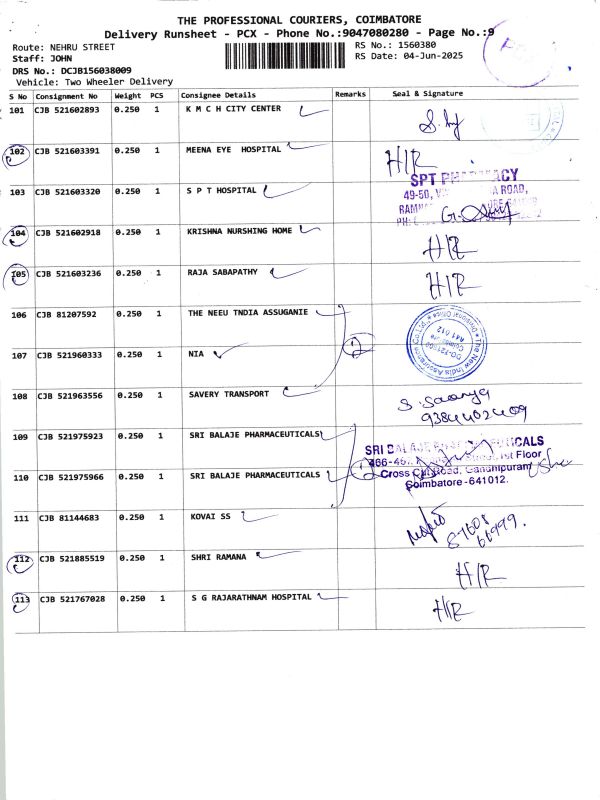 THE PROFESSIONAL COURIERS, COIMBATORE
Delivery Runsheet - PCX - Phone No.:9047080280 - Page No.:9
Route: NEHRU STREET
RS No.: 1560380
Staff: JOHN
RS Date: 04-Jun-2025
DRS No.: DCJB156038009
Vehicle: Two Wheeler Delivery
S No Consignment No Weight PCS Consignee Details Remarks Seal & Signature
101 CJB 521602893 0.250 1 K M C H CITY CENTER
102 CJB 521603391 0.250 1 MEENA EYE HOSPITAL H/R
SPT PHARMACY
103 CJB 521603320 0.250 1 S P T HOSPITAL 49-50, ROAD,
104 CJB 521602918 0.250 1 KRISHNA NURSHING HOME H/R
105 CJB 521603236 0.250 1 RAJA SABAPATHY H/R
106 CJB 81207592 0.250 1 THE NEEU TNDIA ASSUGANIE
The New India Assurance Co. Ltd.
Divisional Office
641 012
107 CJB 521960333 0.250 1 NIA 1
108 CJB 521963556 0.250 1 SAVERY TRANSPORT S. Saranya
9384402409
109 CJB 521975923 0.250 1 SRI BALAJE PHARMACEUTICALS
SRI BALAJE PHARMACEUTICALS
1st Floor
110 CJB 521975966 0.250 1 SRI BALAJE PHARMACEUTICALS Cross Cut Road, Gandhipuram
Coimbatore - 641012.
111 CJB 81144683 0.250 1 KOVAI SS 87608
66999.
112 CJB 521885519 0.250 1 SHRI RAMANA H/R
113 CJB 521767028 0.250 1 S G RAJARATHNAM HOSPITAL H/R